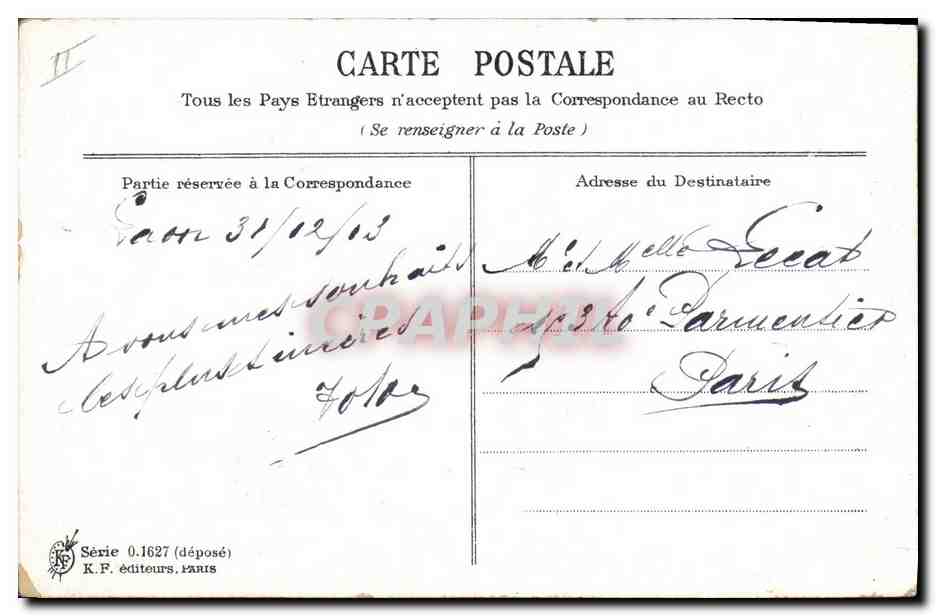 II
CARTE POSTALE
Tous les Pays Etrangers n'acceptent pas la Correspondance au Recto
(Se renseigner à la Poste)
Partie réservée à la Correspondance
Laon 31/12/03
A vous mes souhaits
les plus sincères
Adresse du Destinataire
Mr et Melle Lecat
Parmentier
Paris
CPAPHIL
KF
Série 0.1627 (déposé)
K.F. éditeurs, PARIS